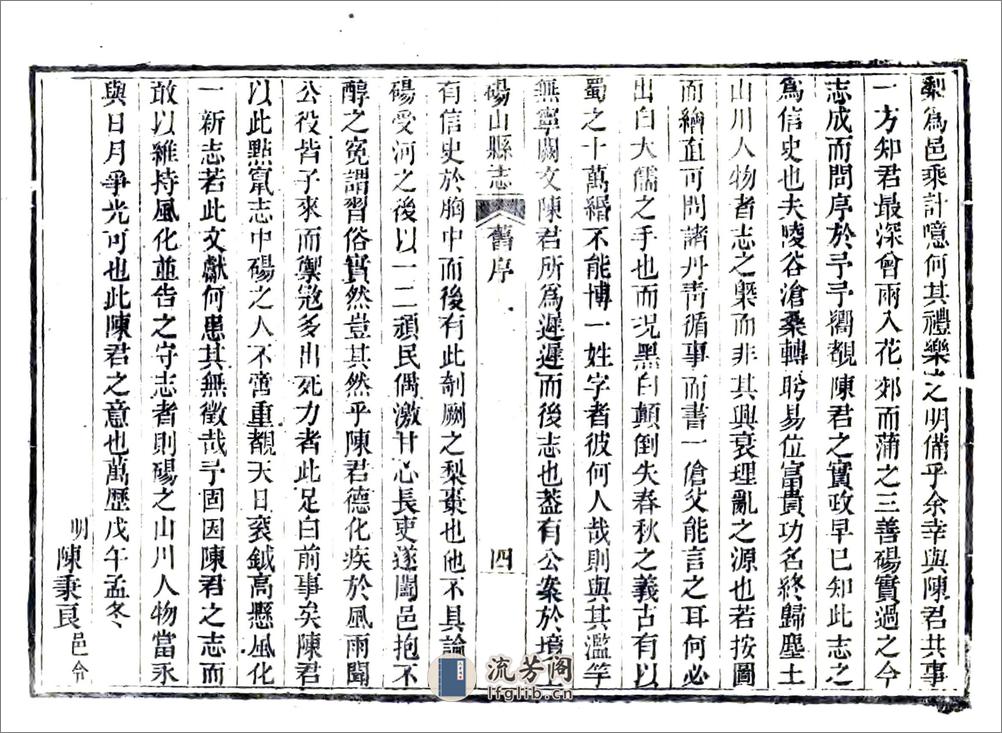 梨為邑乘計噫何其禮樂之明備乎余幸與陳君共事
一方知君最深曾雨入花郊而蒲之三善碭實過之今
志成而問序於予予嚮覩陳君之實政早已知此志之
為信史也夫陵谷滄桑轉盻易位富貴功名終歸塵土
山川人物者志之槩而非其興衰理亂之源也若按圖
而繪直可問諸丹青循事而書一傖父能言之耳何必
出自大儒之手也而況黑白顛倒失春秋之義古有以
蜀之十萬緡不能博一姓字者彼何人哉則與其濫竽
無寧闕文陳君所為遲遲而後志也葢有公案於境
碭山縣志
舊序
四
有信史於胸中而後有此剞劂之梨棗也他不具論
碭受河之後以一二頑民偶激甘心長吏遂闔邑抱不
醇之寃謂習俗實然豈其然乎陳君德化疾於風雨聞
公役皆子來而禦寇多出死力者此足白前事矣陳君
以此點竄志中碭之人不啻重覩天日袞鉞高懸風化
一新志若此文獻何患其無徵哉予固因陳君之志而
敢以維持風化並告之守志者則碭之山川人物當永
與日月爭光可也此陳君之意也萬歷戊午孟冬
明陳秉良邑令
流芳阁
lfglib.cn